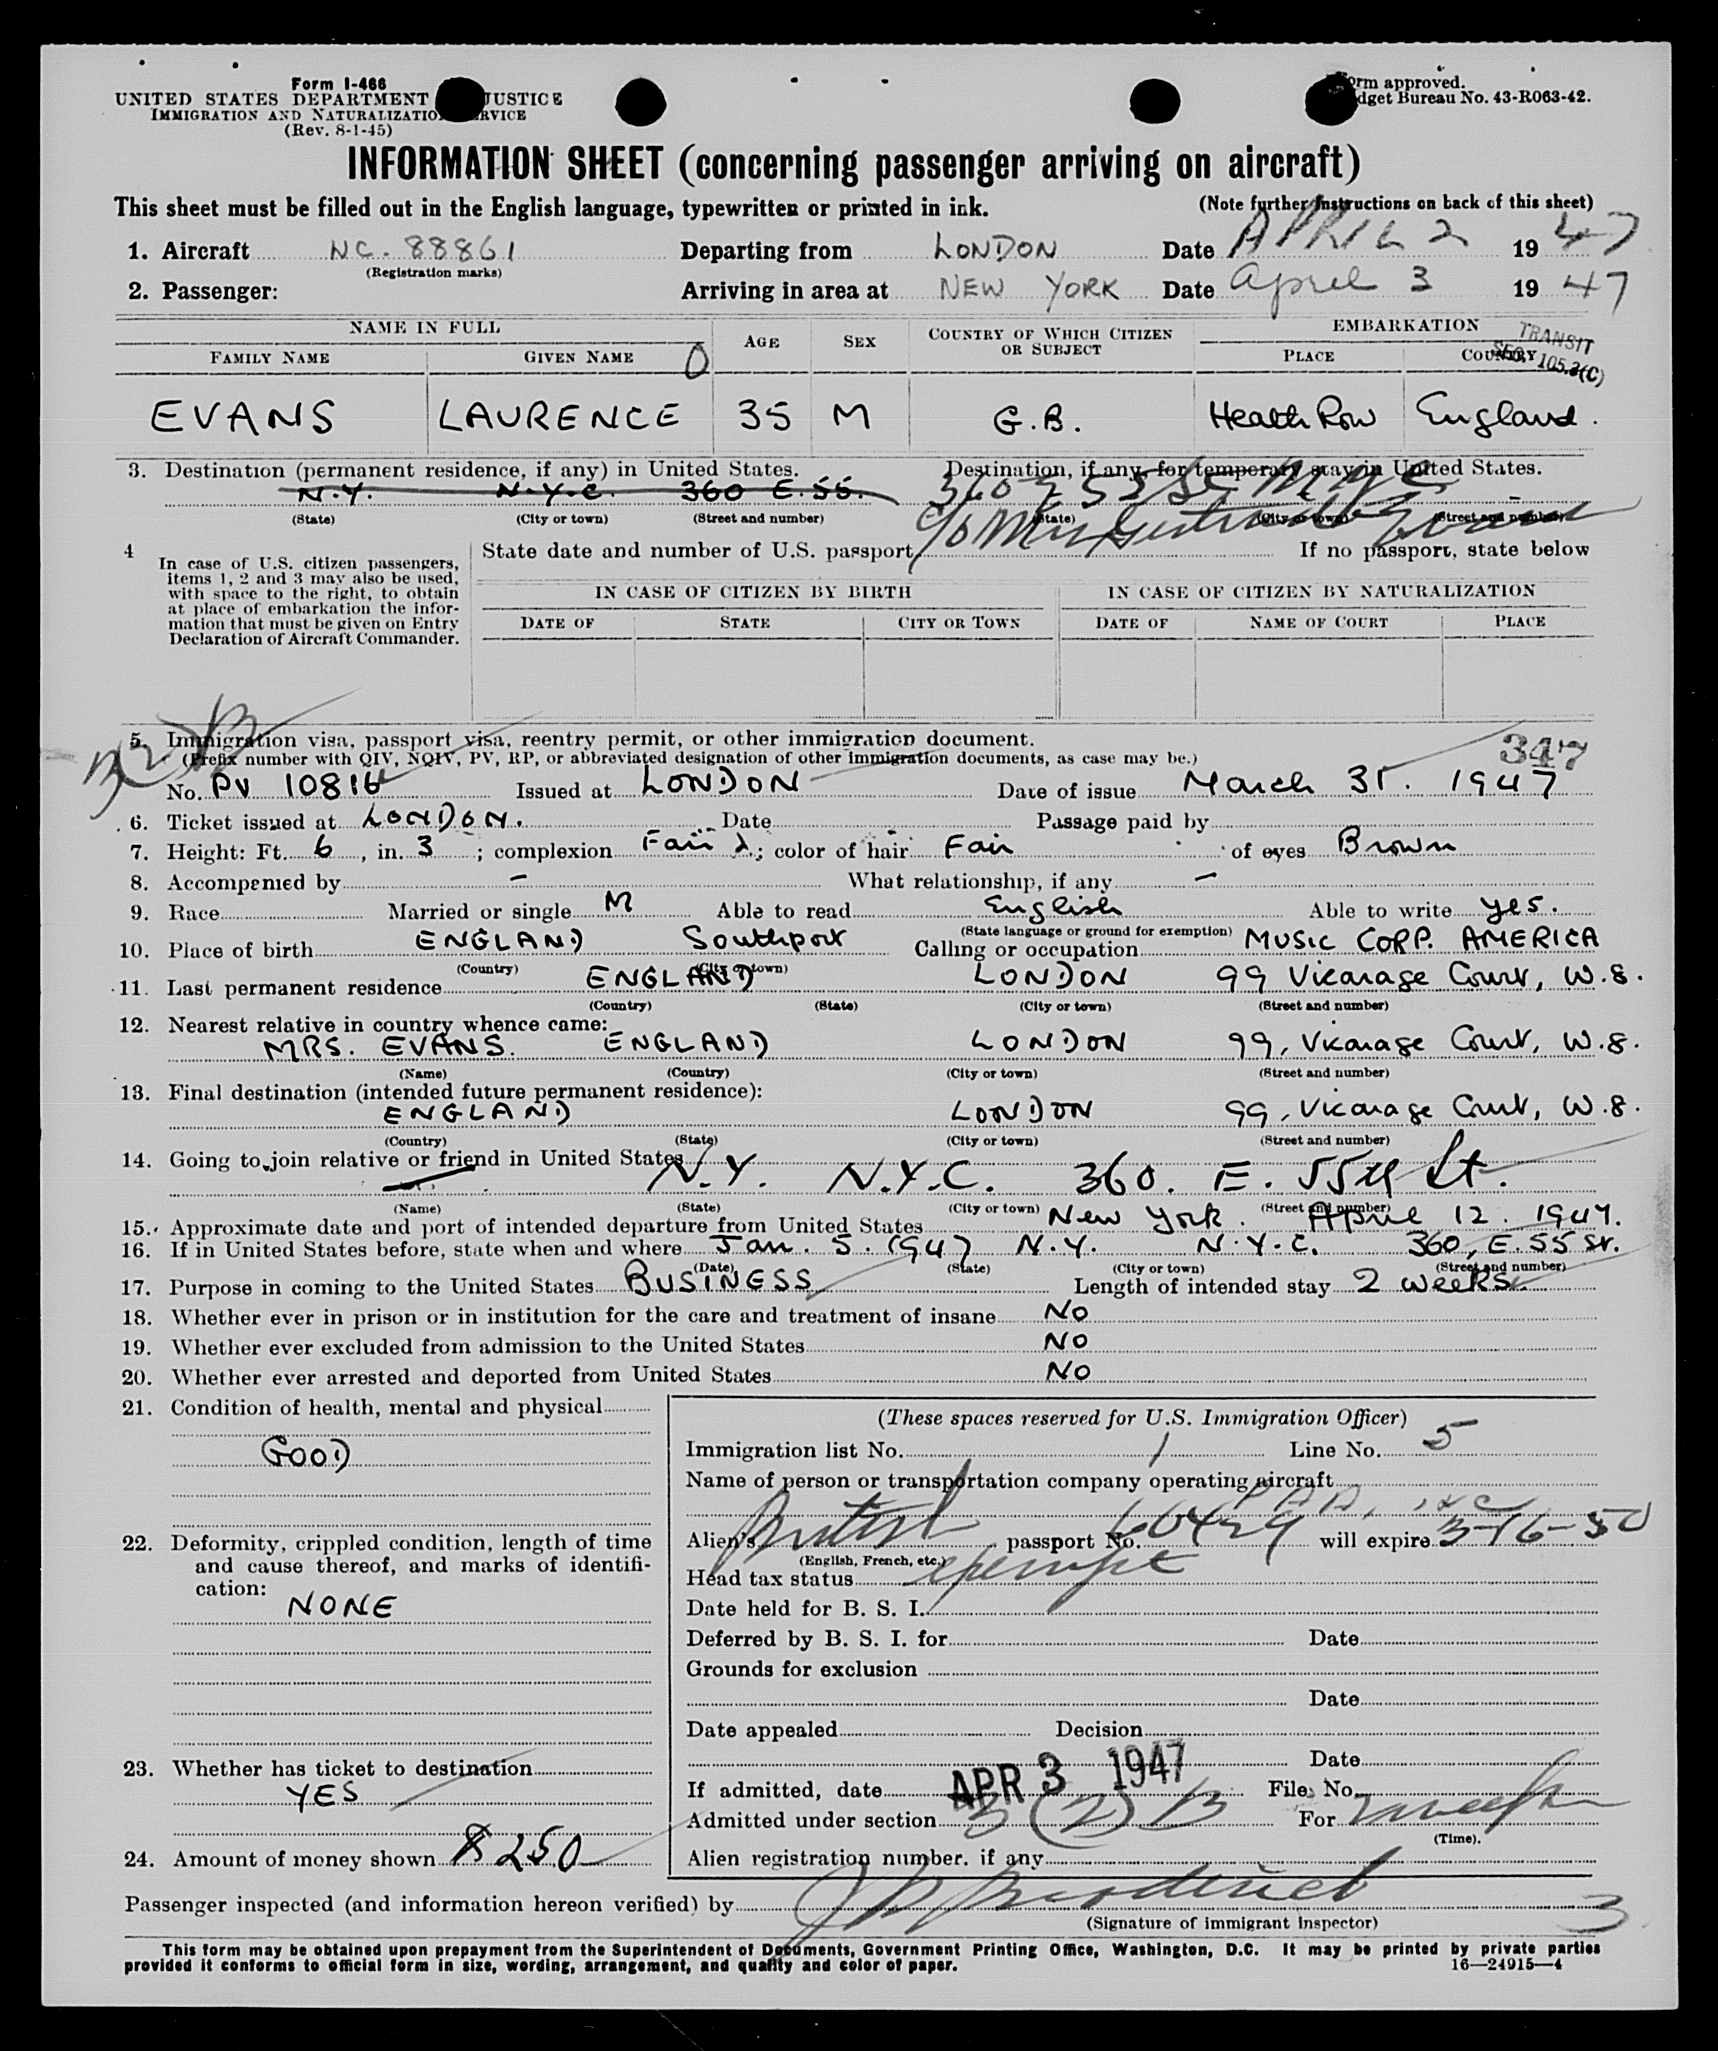 Form I-466
UNITED STATES DEPARTMENT JUSTICE
IMMIGRATION AND NATURALIZATION SERVICE
(Rev. 8-1-45)
Form approved.
Budget Bureau No. 43-R063-42.
INFORMATION SHEET (concerning passenger arriving on aircraft)
This sheet must be filled out in the English language, typewritten or printed in ink.
(Note further instructions on back of this sheet)
1. Aircraft NC. 88861 Departing from LONDON Date APRIL 2 19 47
(Registration marks)
2. Passenger: Arriving in area at NEW YORK Date April 3 19 47
NAME IN FULL
FAMILY NAME GIVEN NAME 0 AGE SEX COUNTRY OF WHICH CITIZEN OR SUBJECT EMBARKATION
PLACE COUNTRY
TRANSIT
SEC. 105.3(C)
EVANS LAURENCE 35 M G.B. Heath Row England.
3. Destination (permanent residence, if any) in United States. Destination, if any, for temporary stay in United States.
N.Y. N.Y.C. 360 E. 55. 360 E 55 St NYC
(State) (City or town) (Street and number) (State) (City or town) (Street and number)
c/o Mrs Gertrude
4 In case of U.S. citizen passengers, items 1, 2 and 3 may also be used, with space to the right, to obtain at place of embarkation the information that must be given on Entry Declaration of Aircraft Commander.
State date and number of U.S. passport If no passport, state below
IN CASE OF CITIZEN BY BIRTH IN CASE OF CITIZEN BY NATURALIZATION
DATE OF STATE CITY OR TOWN DATE OF NAME OF COURT PLACE
5. Immigration visa, passport visa, reentry permit, or other immigration document. 347
(Prefix number with QIV, NQIV, PV, RP, or abbreviated designation of other immigration documents, as case may be.)
No. PV 10816 Issued at LONDON Date of issue March 31. 1947
6. Ticket issued at LONDON. Date Passage paid by
7. Height: Ft. 6, in. 3; complexion Fair; color of hair Fair of eyes Brown
8. Accompanied by - What relationship, if any -
9. Race Married or single M Able to read English Able to write yes.
(State language or ground for exemption)
10. Place of birth ENGLAND Southport Calling or occupation MUSIC CORP. AMERICA
(Country) (City or town)
11. Last permanent residence ENGLAND LONDON 99 Vicarage Court, W.8.
(Country) (State) (City or town) (Street and number)
12. Nearest relative in country whence came:
MRS. EVANS. ENGLAND LONDON 99, Vicarage Court, W.8.
(Name) (Country) (City or town) (Street and number)
13. Final destination (intended future permanent residence):
ENGLAND LONDON 99, Vicarage Court, W.8.
(Country) (State) (City or town) (Street and number)
14. Going to join relative or friend in United States
N.Y. N.Y.C. 360. E. 55th St.
(Name) (State) (City or town) (Street and number)
15. Approximate date and port of intended departure from United States New York. April 12. 1947.
16. If in United States before, state when and where Jan. 5. 1947 N.Y. N.Y.C. 360, E. 55 St.
(Date) (State) (City or town) (Street and number)
17. Purpose in coming to the United States BUSINESS Length of intended stay 2 weeks.
18. Whether ever in prison or in institution for the care and treatment of insane NO
19. Whether ever excluded from admission to the United States NO
20. Whether ever arrested and deported from United States NO
21. Condition of health, mental and physical
GOOD
22. Deformity, crippled condition, length of time and cause thereof, and marks of identification:
NONE
23. Whether has ticket to destination
YES
24. Amount of money shown $250
(These spaces reserved for U.S. Immigration Officer)
Immigration list No. 1 Line No. 5
Name of person or transportation company operating aircraft
PAA, Inc
Alien's British passport No. will expire 3-16-50
(English, French, etc.)
Head tax status exempt
Date held for B. S. I.
Deferred by B. S. I. for Date
Grounds for exclusion
Date
Date appealed Decision
Date
If admitted, date APR 3 1947 File No.
Admitted under section 3 (2) B For
(Time).
Alien registration number, if any
Passenger inspected (and information hereon verified) by
(Signature of immigrant inspector) 3
This form may be obtained upon prepayment from the Superintendent of Documents, Government Printing Office, Washington, D.C. It may be printed by private parties
provided it conforms to official form in size, wording, arrangement, and quality and color of paper. 16—24915—4